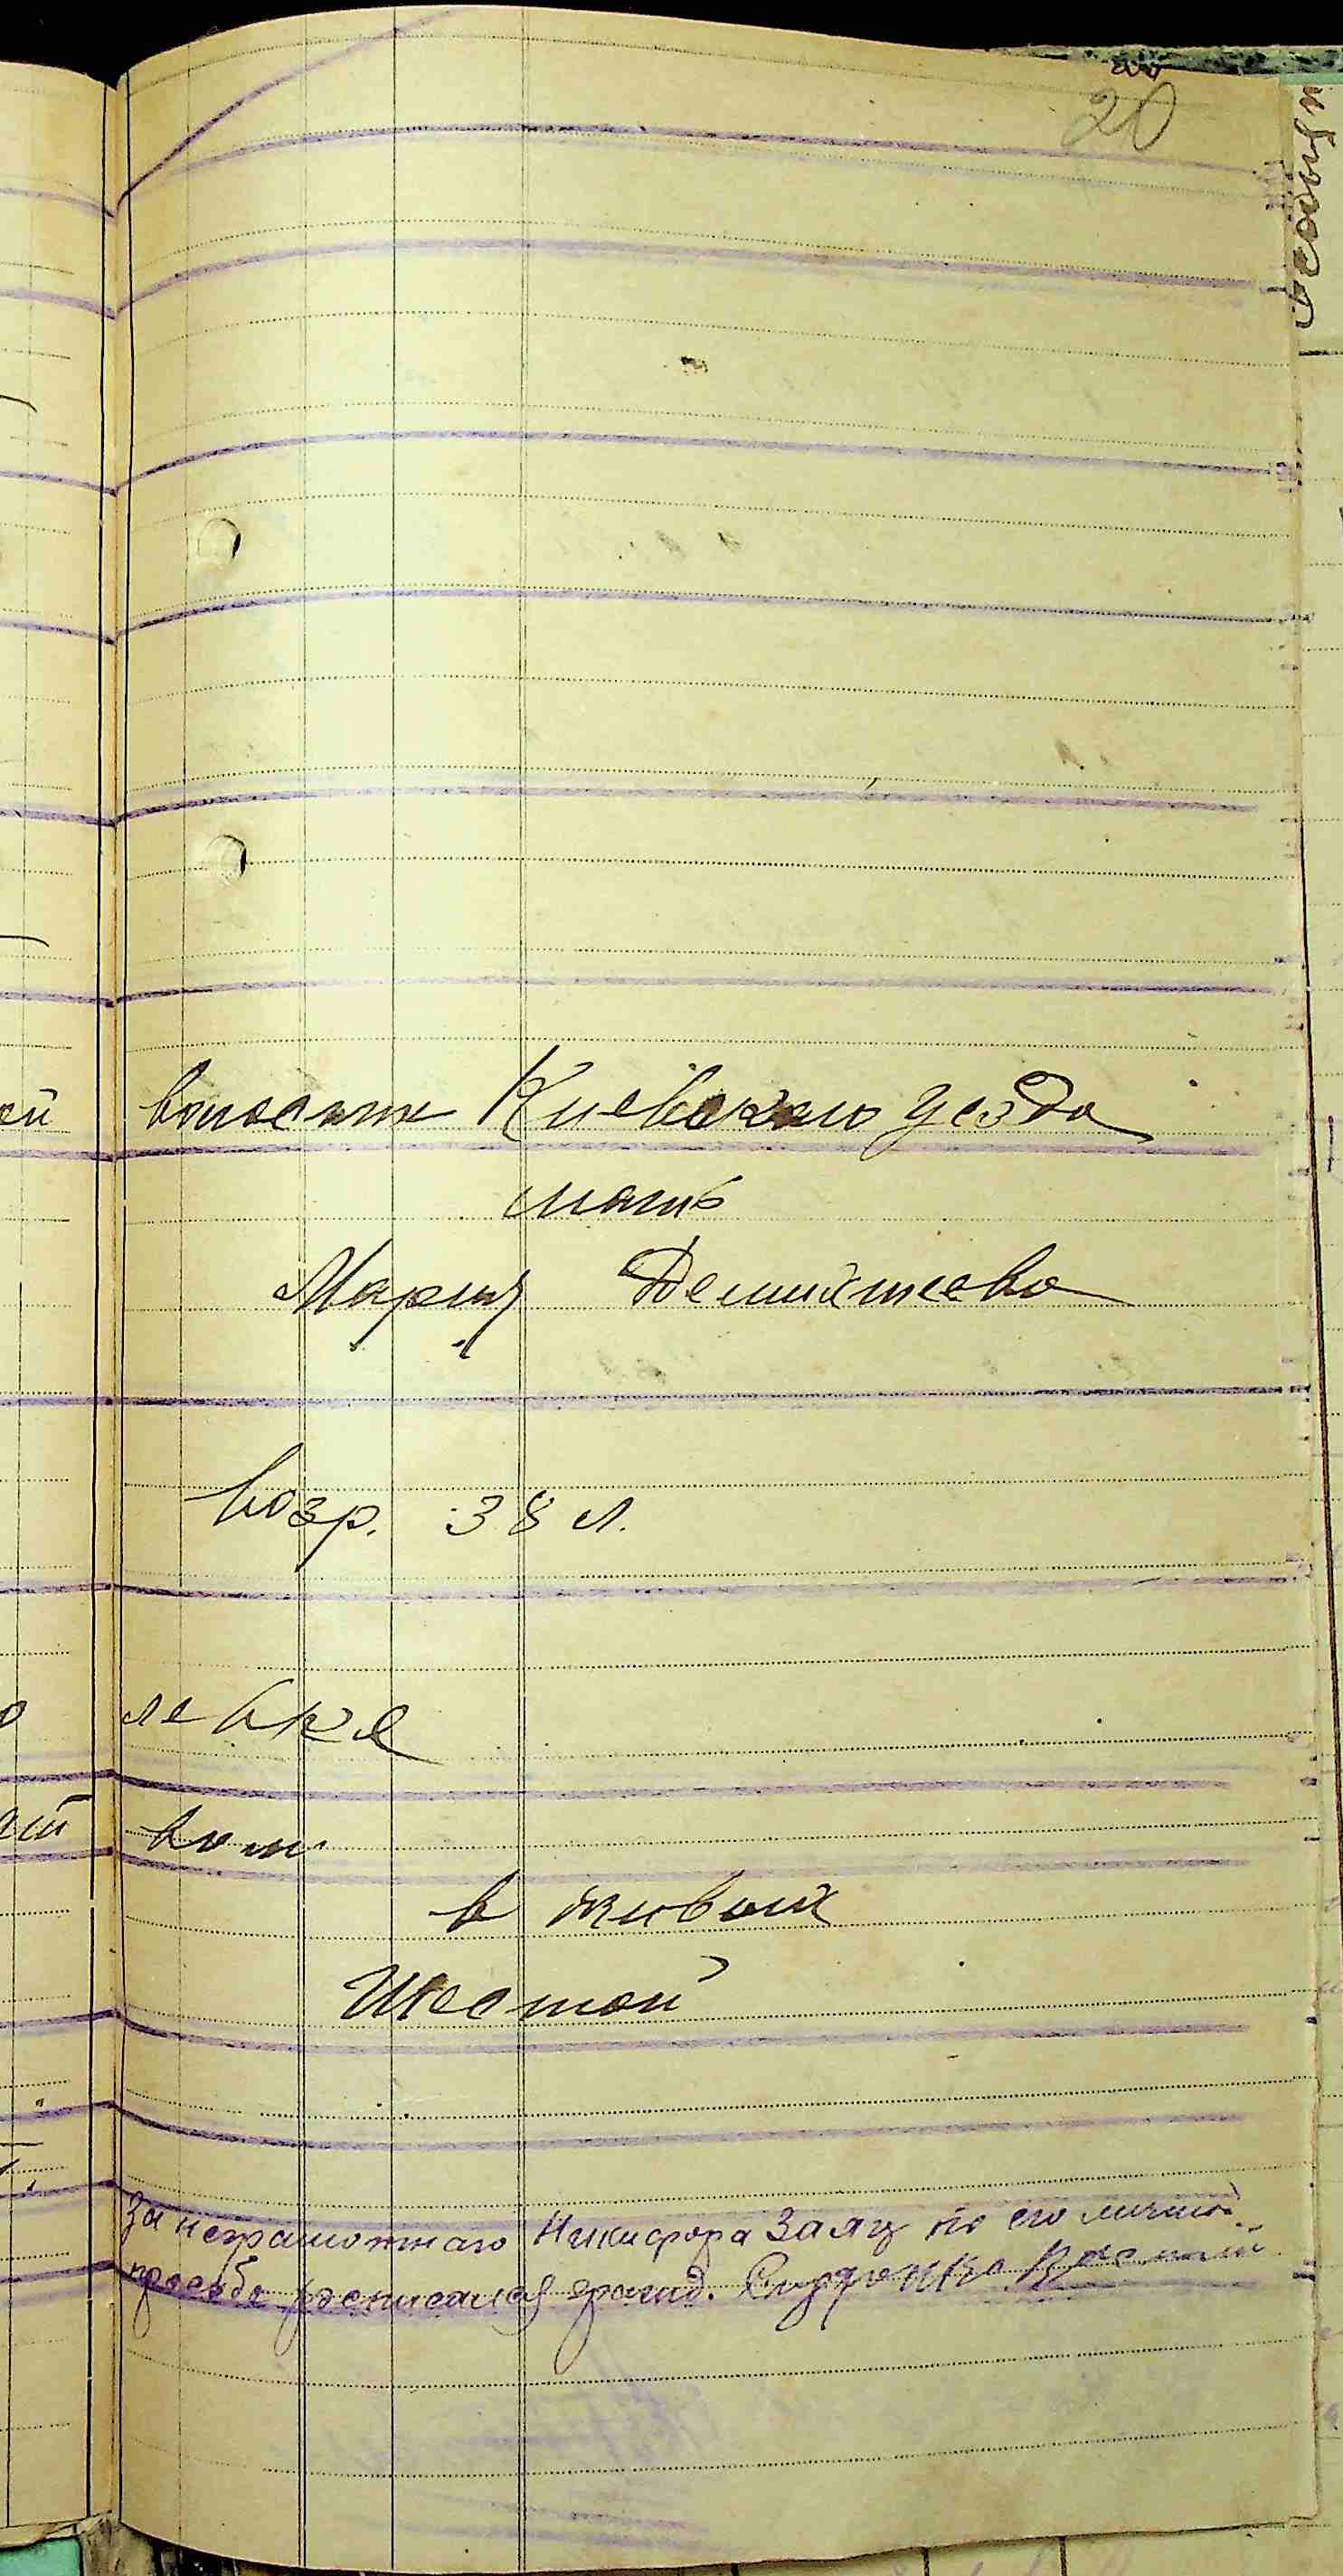 20
ой волости Киевского уезда
мать
Мария Дементеева
Возр. 38 л.
левка
ком
в живых
Шестой
За неграмотнаго Никифора Заяц по его личной
просьбе росписался гражд. Сидренко Василий